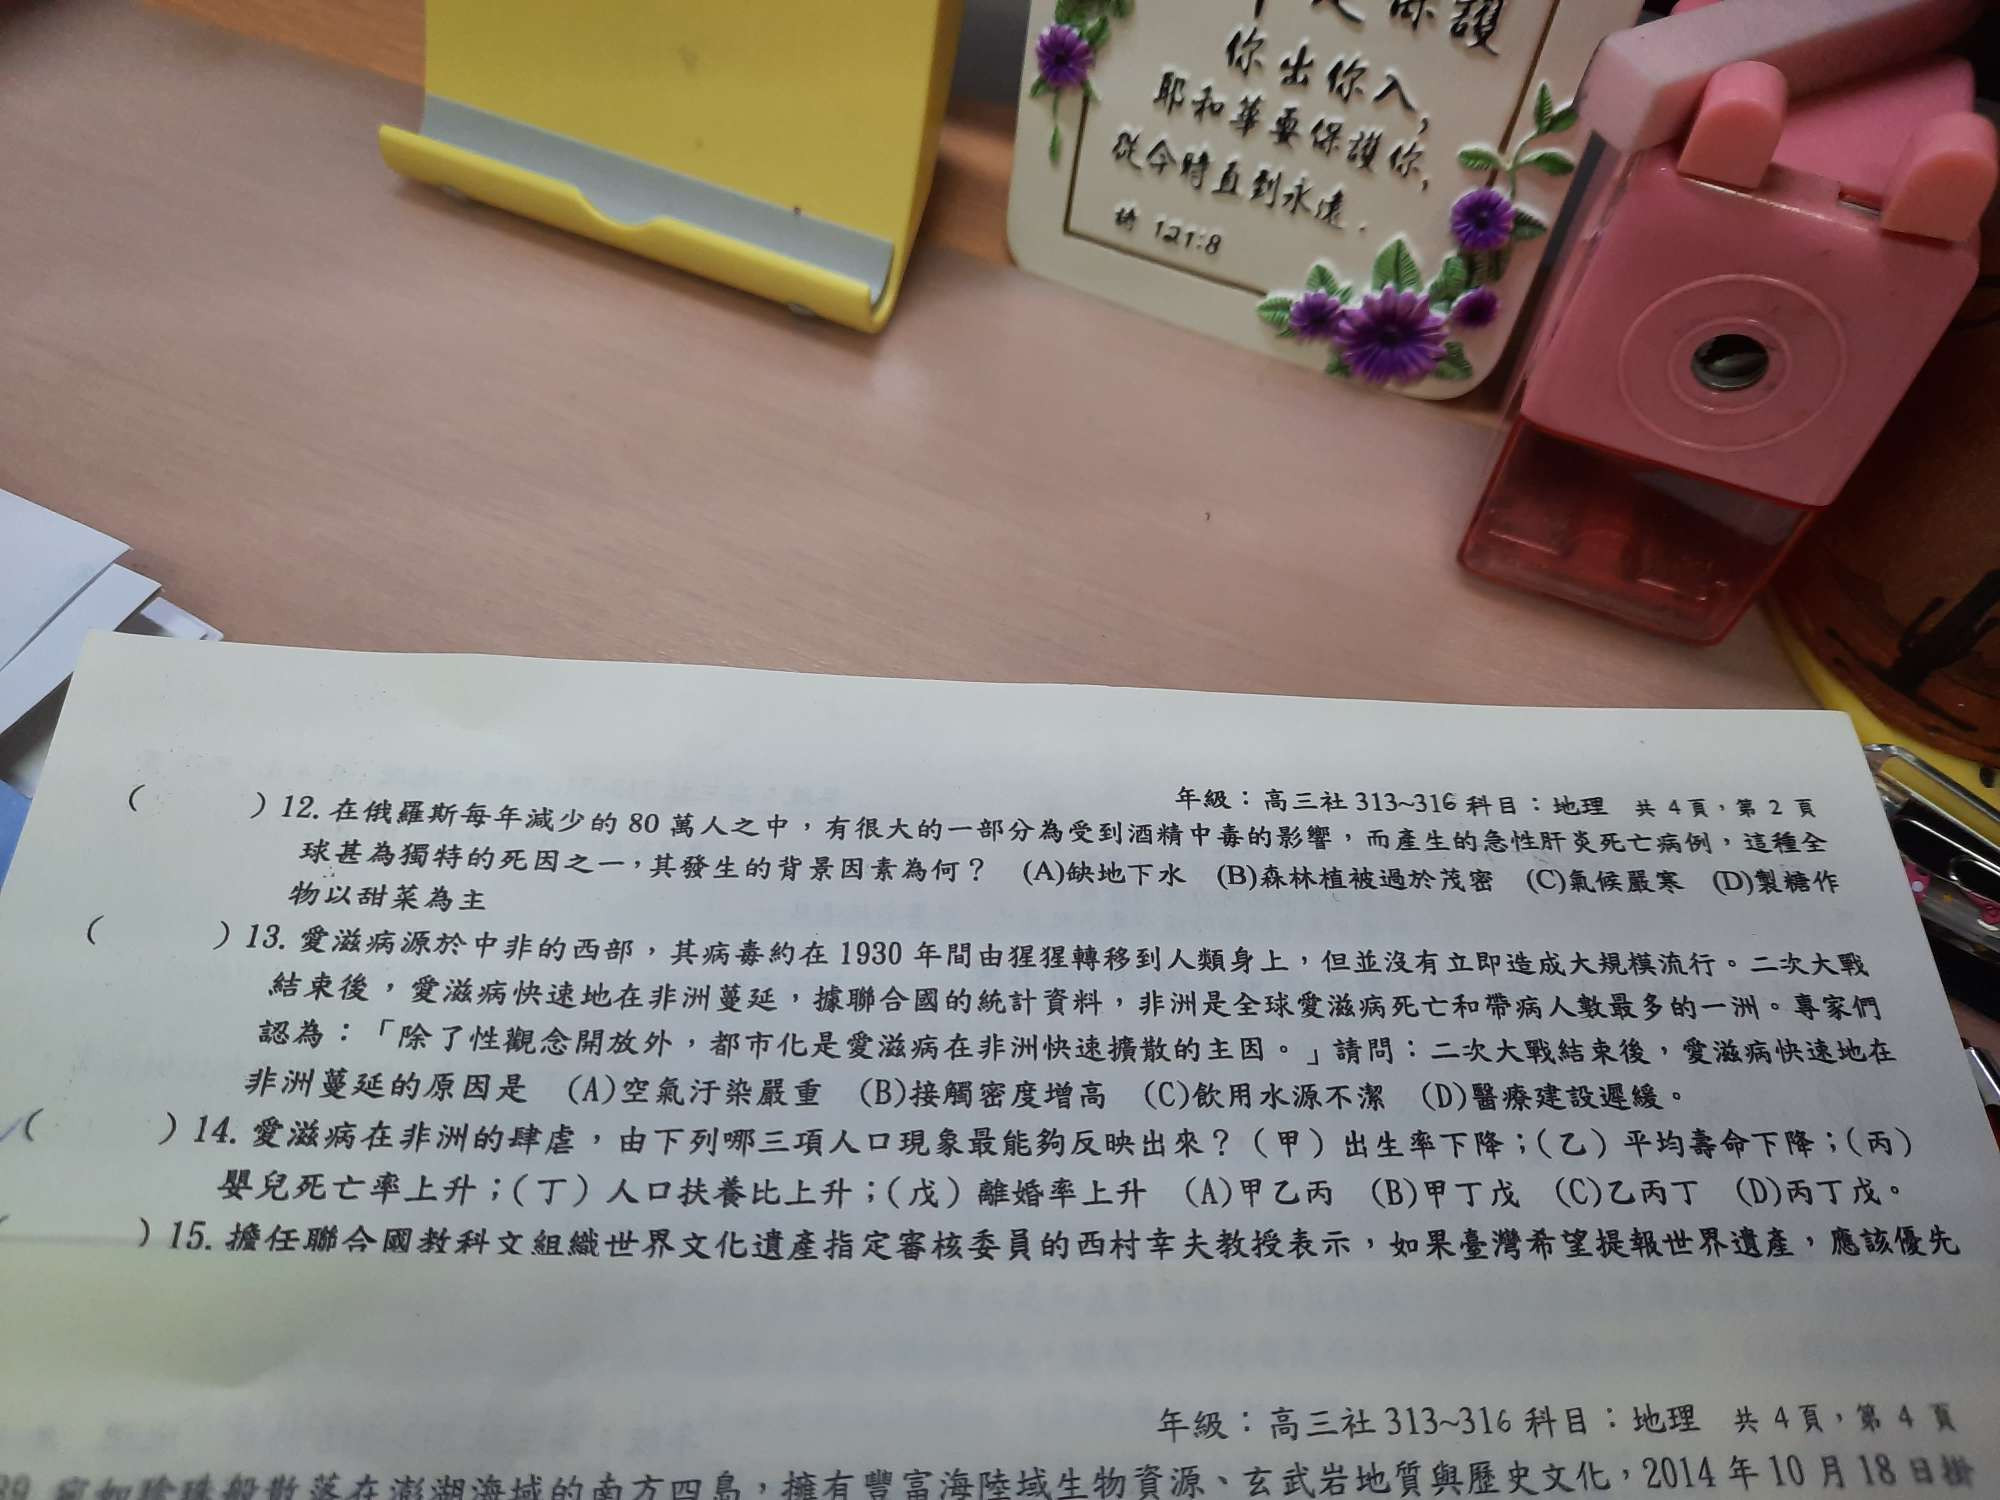 保護
你出你入，
耶和華要保護你，
從今時直到永遠．
詩 121:8
年級：高三社 313~316 科目：地理 共 4 頁，第 2 頁
（ ）12. 在俄羅斯每年減少的 80 萬人之中，有很大的一部分為受到酒精中毒的影響，而產生的急性肝炎死亡病例，這種全
球甚為獨特的死因之一，其發生的背景因素為何？ (A)缺地下水 (B)森林植被過於茂密 (C)氣候嚴寒 (D)製糖作
物以甜菜為主
（ ）13. 愛滋病源於中非的西部，其病毒約在 1930 年間由猩猩轉移到人類身上，但並沒有立即造成大規模流行。二次大戰
結束後，愛滋病快速地在非洲蔓延，據聯合國的統計資料，非洲是全球愛滋病死亡和帶病人數最多的一洲。專家們
認為：「除了性觀念開放外，都市化是愛滋病在非洲快速擴散的主因。」請問：二次大戰結束後，愛滋病快速地在
非洲蔓延的原因是 (A)空氣汙染嚴重 (B)接觸密度增高 (C)飲用水源不潔 (D)醫療建設遲緩。
（ ）14. 愛滋病在非洲的肆虐，由下列哪三項人口現象最能夠反映出來？（甲）出生率下降；（乙）平均壽命下降；（丙）
嬰兒死亡率上升；（丁）人口扶養比上升；（戊）離婚率上升 (A)甲乙丙 (B)甲丁戊 (C)乙丙丁 (D)丙丁戊。
（ ）15. 擔任聯合國教科文組織世界文化遺產指定審核委員的西村幸夫教授表示，如果臺灣希望提報世界遺產，應該優先
年級：高三社 313~316 科目：地理 共 4 頁，第 4 頁
39. 宛如珍珠般散落在澎湖海域的南方四島，擁有豐富海陸域生物資源、玄武岩地質與歷史文化，2014 年 10 月 18 日掛